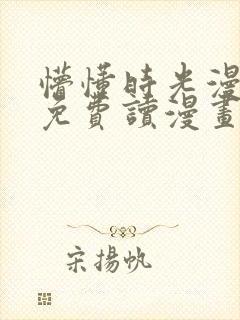 懵懂時光漫
免費讀漫畫
宋揚帆